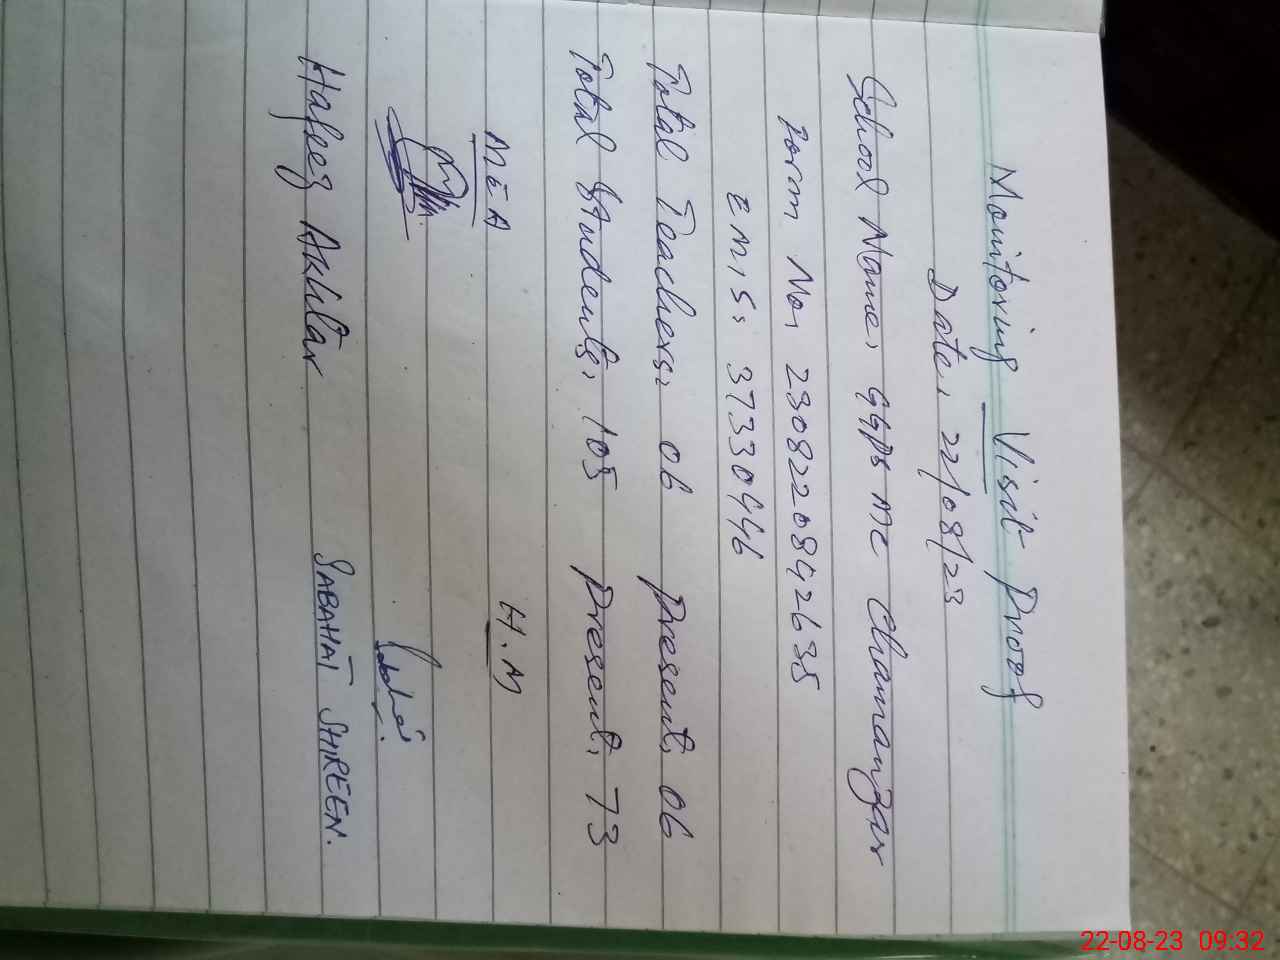 Monitoring Visit Proof
Date, 22/08/23
School Name, GGPS MC Chamanzar
Form No, 2308220842635
E M, S, 37330446
Total Teachers, 06 Present, 06
Total Students, 105 Present, 73
M E A H.M
Sabahat
Hafeez Akhtar SABAHAT SHIREEN.
22-08-23 09:32